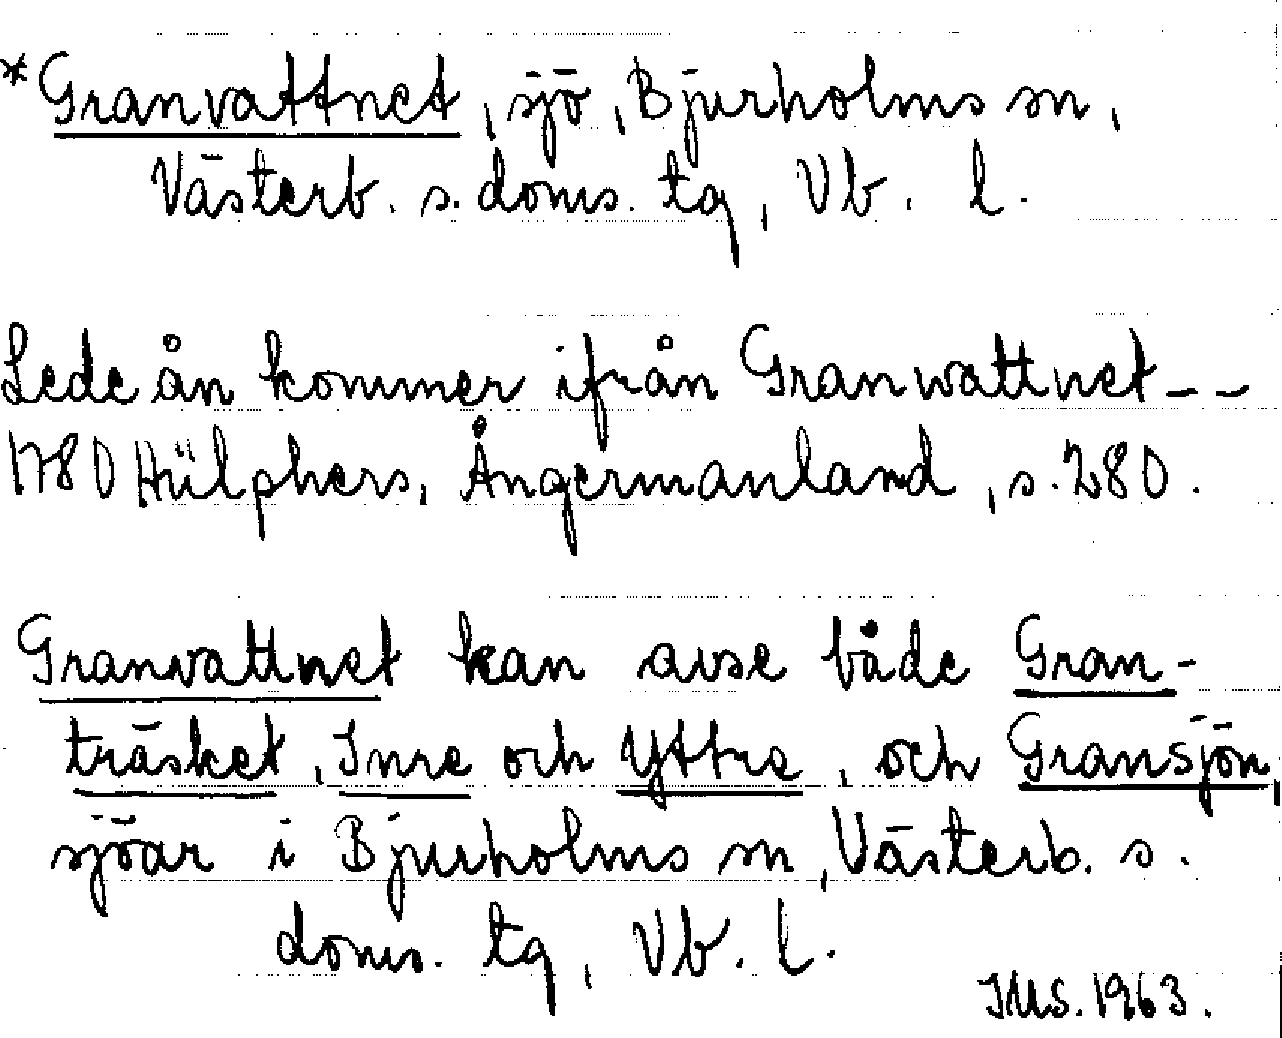 *Granvattnet, sjö, Bjurholms sn,
Västerb. s. doms. tg, Vb. l.
Lede ån kommer ifrån Granwattnet--
1780 Hülphers, Ångermanland, s. 280.
Granvattnet kan avse både Gran-
träsket, Inre och Yttre, och Gransjön,
sjöar i Bjurholms sn, Västerb. s.
doms. tg, Vb. l.
IMS. 1963.